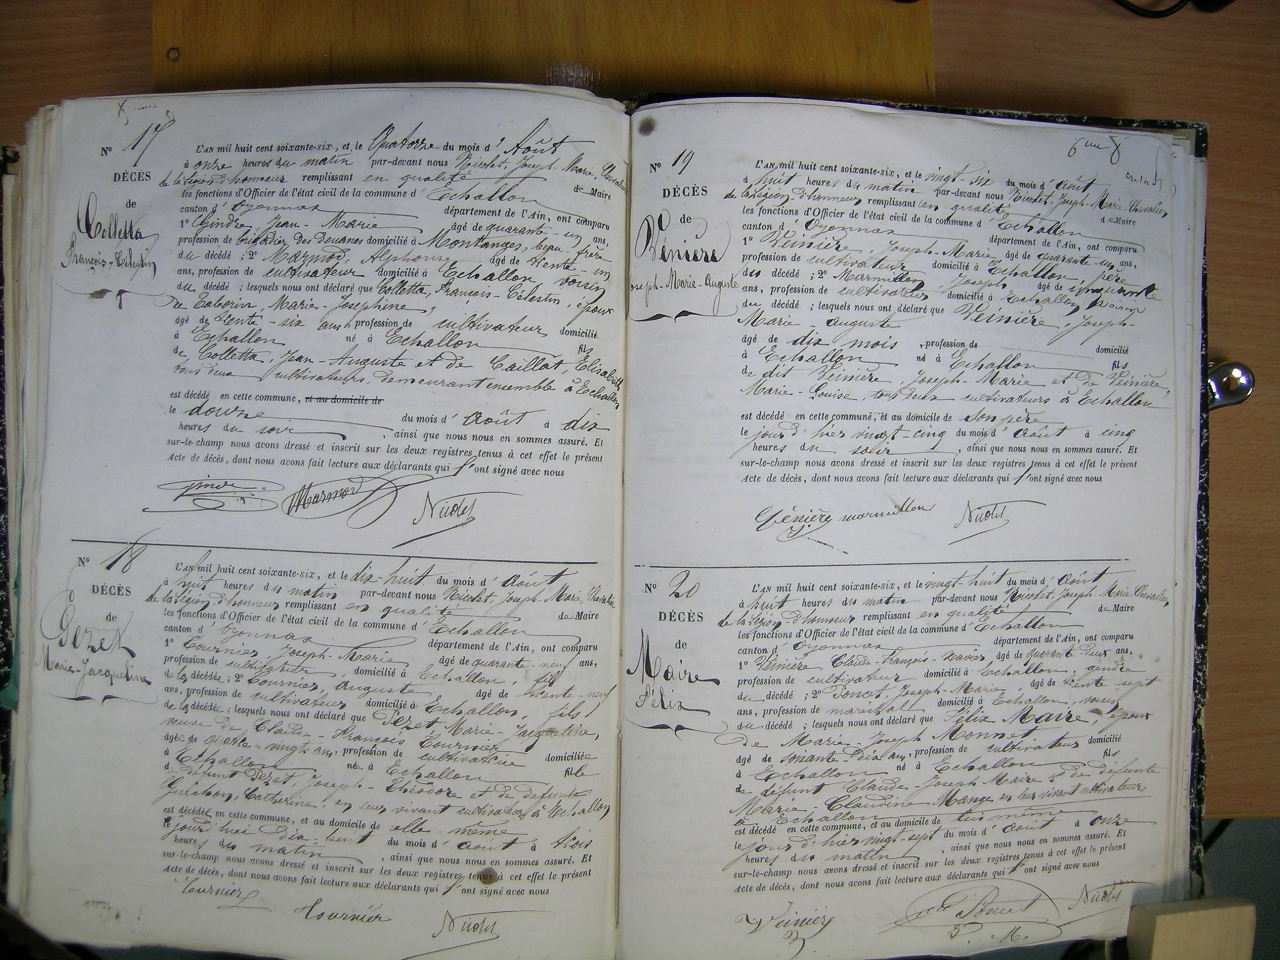 N° 17
DÉCÈS
de
Colletta
François-Célestin
L'AN mil huit cent soixante-six, et le Quatorze du mois d'Août
à onze heures du matin par-devant nous Nicolet, Joseph-Marie, Chevalier
de la Légion d'honneur remplissant en qualité de Maire
les fonctions d'Officier de l'état civil de la commune d'Echallon
canton d'Oyonnax département de l'Ain, ont comparu
1° Jean-Marie âgé de quarante-un ans,
profession de des Douanes domicilié à Montanges, beau frère
du décédé ; 2° Marmod, Alphonse âgé de trente-un
ans, profession de cultivateur domicilié à Echallon voisin
du décédé ; lesquels nous ont déclaré que Colletta, François-Célestin, époux
de Marie-Josephine,
âgé de trente-six ans profession de cultivateur domicilié
à Echallon né à Echallon fils
de Colletta, Jean-Auguste et de Caillat, Elisabeth
tous deux cultivateurs, demeurant ensemble à Echallon
est décédé en cette commune, et au domicile de
le douze du mois d'Août à dix
heures du soir , ainsi que nous nous en sommes assuré. Et
sur-le-champ nous avons dressé et inscrit sur les deux registres tenus à cet effet le présent
acte de décès, dont nous avons fait lecture aux déclarants qui l'ont signé avec nous
Marmod
N° 18
DÉCÈS
de
Gezet
Marie-Jacqueline
L'AN mil huit cent soixante-six, et le dix-huit du mois d'Août
à huit heures du matin par-devant nous Nicolet, Joseph-Marie, Chevalier
de la Légion d'honneur remplissant en qualité de Maire
les fonctions d'Officier de l'état civil de la commune d'Echallon
canton d'Oyonnax département de l'Ain, ont comparu
1° Tournier, Joseph-Marie âgé de quarante-neuf ans,
profession de cultivateur, domicilié à Echallon, fils
de la décédée ; 2° Tournier, Auguste âgé de trente-neuf
ans, profession de cultivateur domicilié à Echallon, fils
de la décédée ; lesquels nous ont déclaré que Gezet, Marie-Jacqueline,
veuve de Claude-François Tournier
âgée de quatre-vingts ans, profession de cultivatrice domiciliée
à Echallon née à Echallon fille
de défunt Gezet Joseph-Théodore et de défunte
Catherine, en leur vivant cultivateurs à Echallon
est décédée en cette commune, et au domicile de elle-même
le jour d'hui dix-huit du mois d'Août à trois
heures du matin , ainsi que nous nous en sommes assuré. Et
sur-le-champ nous avons dressé et inscrit sur les deux registres tenus à cet effet le présent
acte de décès, dont nous avons fait lecture aux déclarants qui l'ont signé avec nous
Tournier Tournier
N° 19
DÉCÈS
de
Vénière
Joseph-Marie-Auguste
L'AN mil huit cent soixante-six, et le vingt-six du mois d'Août
à huit heures du matin par-devant nous Nicolet, Joseph-Marie, Chevalier
de la Légion d'honneur remplissant en qualité de Maire
les fonctions d'Officier de l'état civil de la commune d'Echallon
canton d'Oyonnax département de l'Ain, ont comparu
1° Vénière, Joseph-Marie âgé de quarante-un ans,
profession de cultivateur domicilié à Echallon, père
du décédé ; 2° Marmillon, Joseph âgé de cinquante
ans, profession de cultivateur domicilié à Echallon, voisin
du décédé ; lesquels nous ont déclaré que Vénière, Joseph-
Marie-Auguste
âgé de dix mois , profession de domicilié
à Echallon né à Echallon fils
de dit Vénière, Joseph-Marie et de Vénière,
Marie-Louise, tous deux cultivateurs à Echallon
est décédé en cette commune, et au domicile de son père
le jour d'hier vingt-cinq du mois d'Août à cinq
heures du soir , ainsi que nous nous en sommes assuré. Et
sur-le-champ nous avons dressé et inscrit sur les deux registres tenus à cet effet le présent
acte de décès, dont nous avons fait lecture aux déclarants qui l'ont signé avec nous
Vénière marmillon
N° 20
DÉCÈS
de
Maire
Félix
L'AN mil huit cent soixante-six, et le vingt-huit du mois d'Août
à huit heures du matin par-devant nous Nicolet, Joseph-Marie, Chevalier
de la Légion d'honneur remplissant en qualité de Maire
les fonctions d'Officier de l'état civil de la commune d'Echallon
canton d'Oyonnax département de l'Ain, ont comparu
1° Vénière Claude-François-Xavier âgé de quarante-deux ans,
profession de cultivateur domicilié à Echallon, gendre
du décédé ; 2° Poncet, Joseph-Marie, âgé de trente-sept
ans, profession de maréchall domicilié à Echallon, voisin
du décédé ; lesquels nous ont déclaré que Félix Maire, époux
de Marie-Joseph Monnet,
âgé de soixante-dix ans, profession de cultivateur domicilié
à Echallon né à Echallon fils
de défunt Claude-Joseph Maire et de défunte
Marie-Claudine Mange en leur vivant cultivateurs
à Echallon
est décédé en cette commune, et au domicile de lui même
le jour d'hier vingt-sept du mois d'Août à onze
heures du matin , ainsi que nous nous en sommes assuré. Et
sur-le-champ nous avons dressé et inscrit sur les deux registres tenus à cet effet le présent
acte de décès, dont nous avons fait lecture aux déclarants qui l'ont signé avec nous
Vénière Poncet